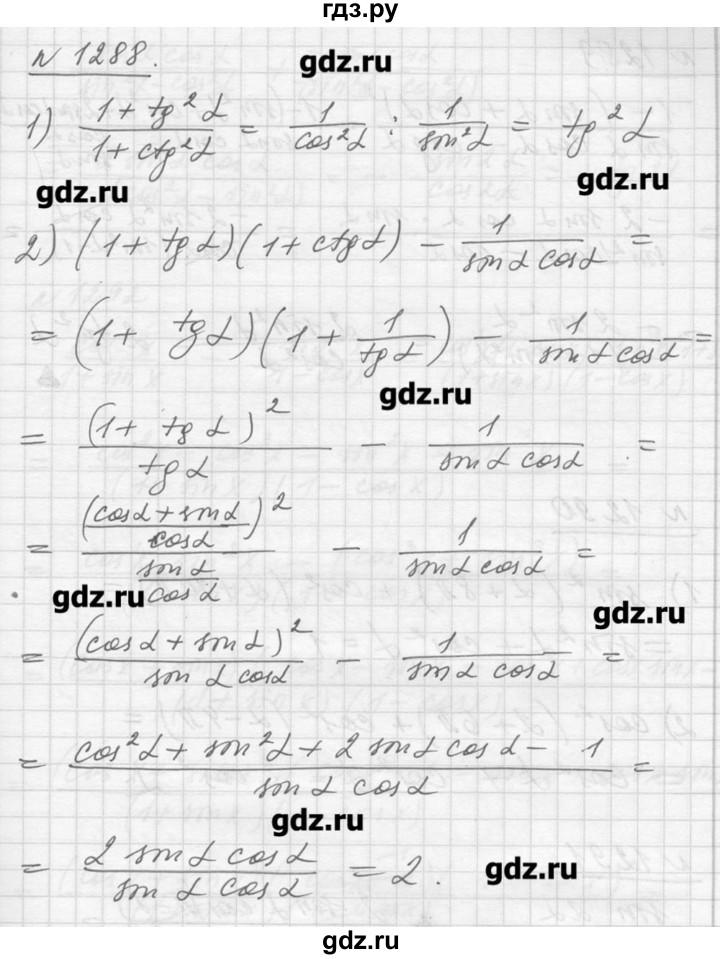 гдз.ру
№ 1288.
gdz.ru
1) (1 + tg² α)/(1 + ctg² α) = 1/cos² α : 1/sin² α = tg² α
gdz.ru
gdz.ru
2) (1 + tg α)(1 + ctg α) − 1/(sin α cos α) =
= (1 + tg α)(1 + 1/tg α) − 1/(sin α cos α) =
gdz.ru
= (1 + tg α)²/tg α − 1/(sin α cos α) =
= ((cos α + sin α)/cos α)²/(sin α/cos α) − 1/(sin α cos α) =
gdz.ru
gdz.ru
= (cos α + sin α)²/(sin α cos α) − 1/(sin α cos α) =
= (cos² α + sin² α + 2 sin α cos α − 1)/(sin α cos α) =
gdz.ru
= (2 sin α cos α)/(sin α cos α) = 2.
gdz.ru
gdz.ru